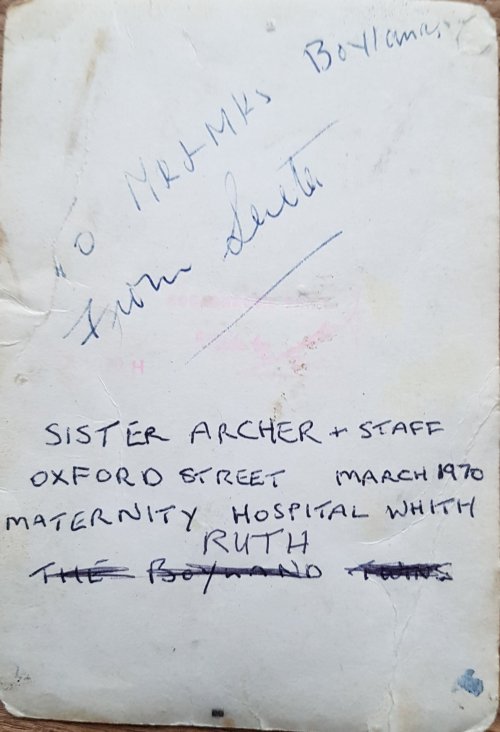 To Mr & Mrs Boylans
From Sister
SISTER ARCHER + STAFF
OXFORD STREET MARCH 1970
MATERNITY HOSPITAL WHITH
RUTH
THE BOYLAND TWINS